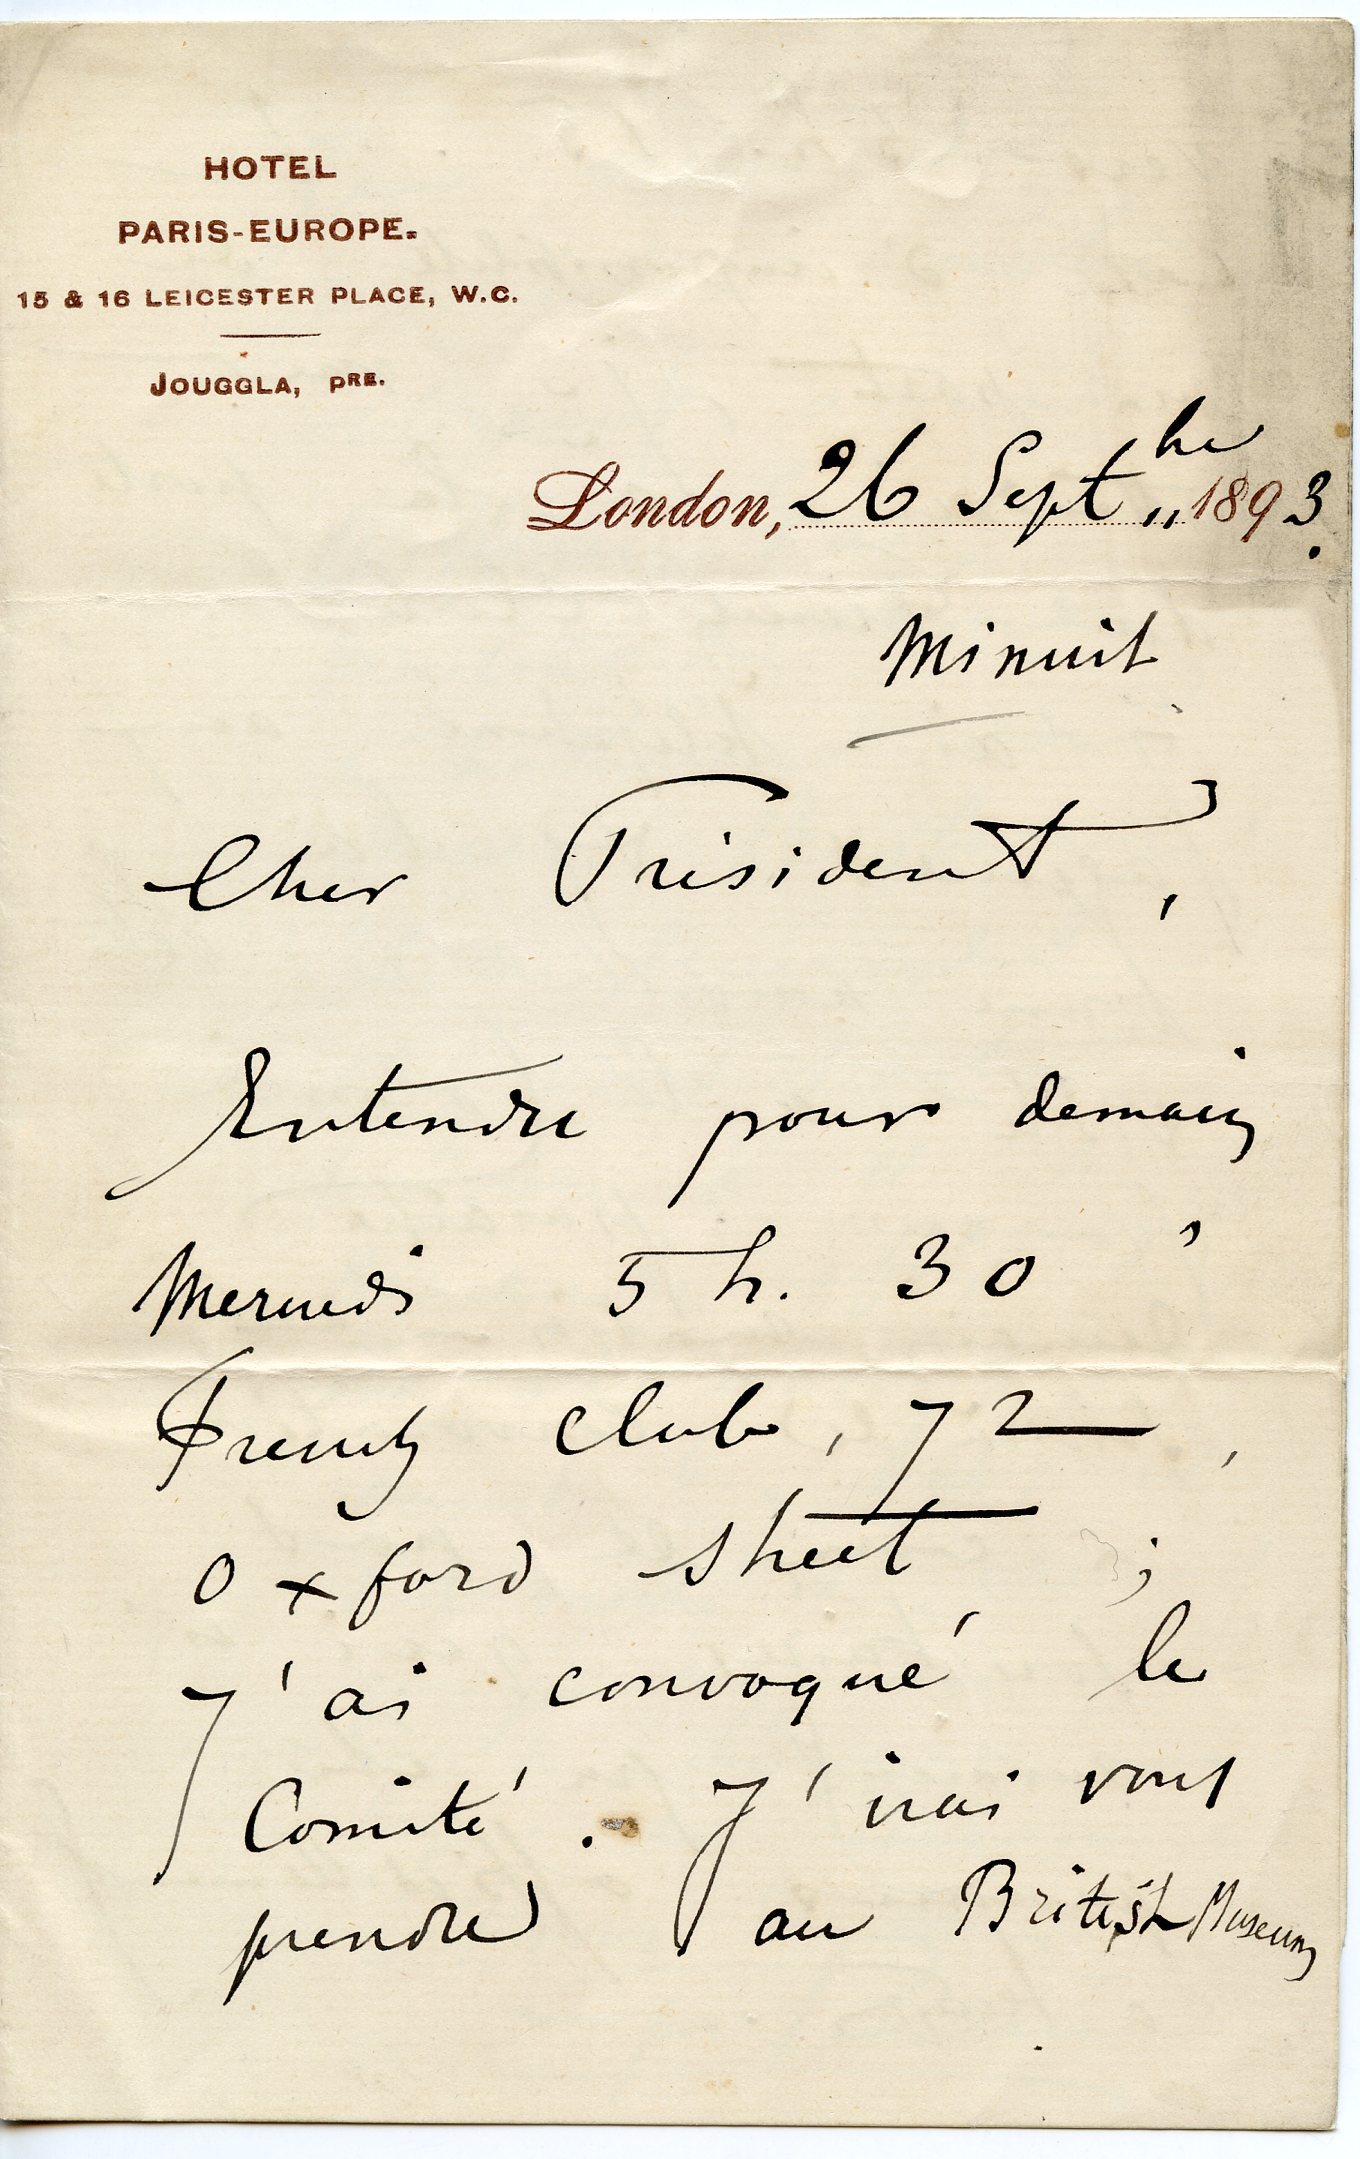 HOTEL
PARIS-EUROPE.
15 & 16 LEICESTER PLACE, W.C.
JOUGGLA, PRE.
London, 26 Septbre 1893.
Minuit
Cher Président,
Entendu pour demain
Mercredi 5 h. 30,
French Club, 72,
Oxford street;
J'ai convoqué le
Comité. J'irai vous
prendre au British Museum